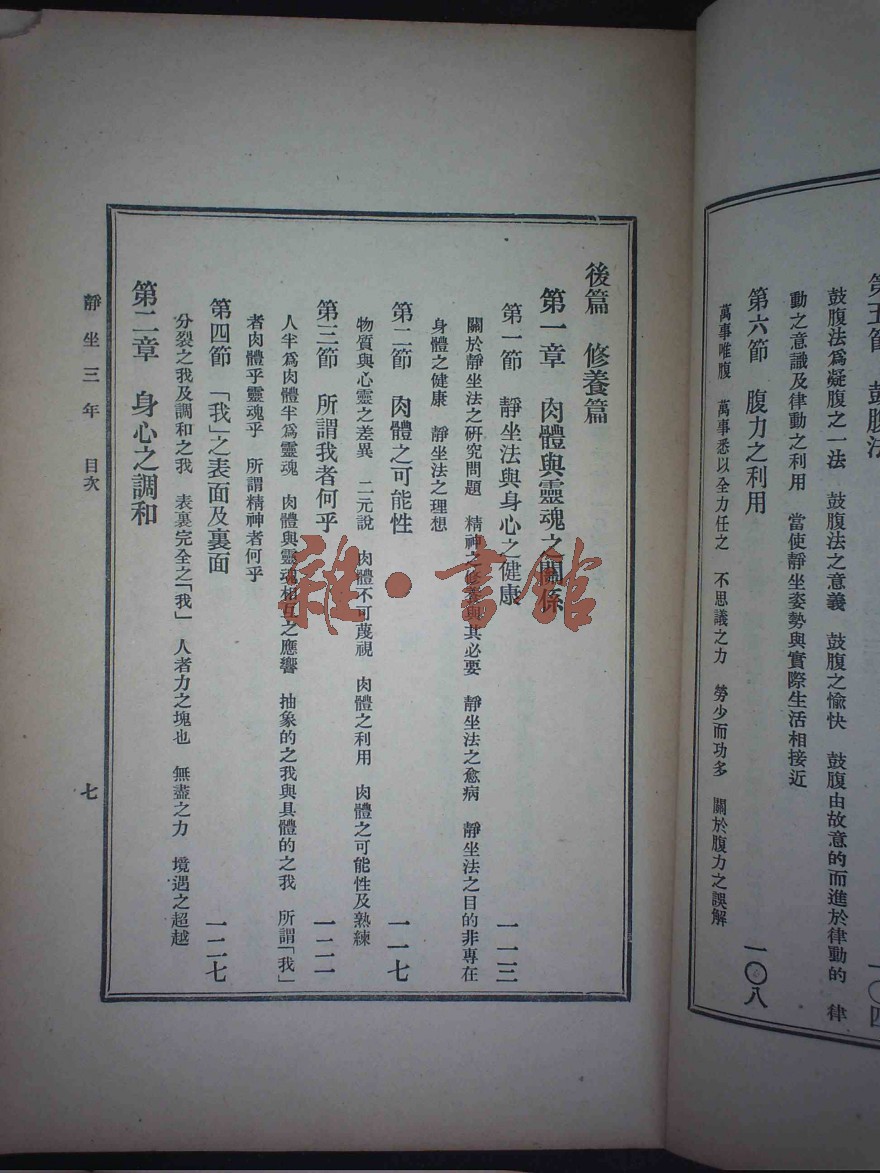 第五節　鼓腹法
一〇四
鼓腹法爲凝腹之一法　鼓腹法之意義　鼓腹之愉快　鼓腹由故意的而進於律動的　律
動之意識及律動之利用　當使靜坐姿勢與實際生活相接近
第六節　腹力之利用
一〇八
萬事唯腹　萬事悉以全力任之　不思議之力　勞少而功多　關於腹力之誤解
後篇　修養篇
第一章　肉體與靈魂之關係
第一節　靜坐法與身心之健康
一一三
關於靜坐法之硏究問題　精神之修養與其必要　靜坐法之愈病　靜坐法之目的非專在
身體之健康　靜坐法之理想
第二節　肉體之可能性
一一七
物質與心靈之差異　二元說　肉體不可蔑視　肉體之利用　肉體之可能性及熟練
第三節　所謂我者何乎
一二一
人半爲肉體半爲靈魂　肉體與靈魂相互之應響　抽象的之我與具體的之我　所謂「我」
者肉體乎靈魂乎　所謂精神者何乎
第四節　「我」之表面及裏面
一二七
分裂之我及調和之我　表裏完全之「我」　人者力之塊也　無盡之力　境遇之超越
第二章　身心之調和
靜坐三年　目次
七
雜·書館